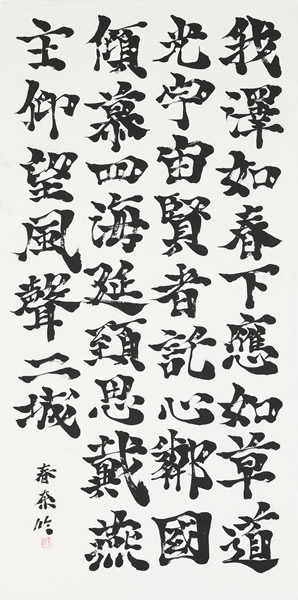 我澤如春下應如草道
光宇宙賢者託心鄰國
傾慕四海延頸思戴燕
主仰望風聲二城
春奈